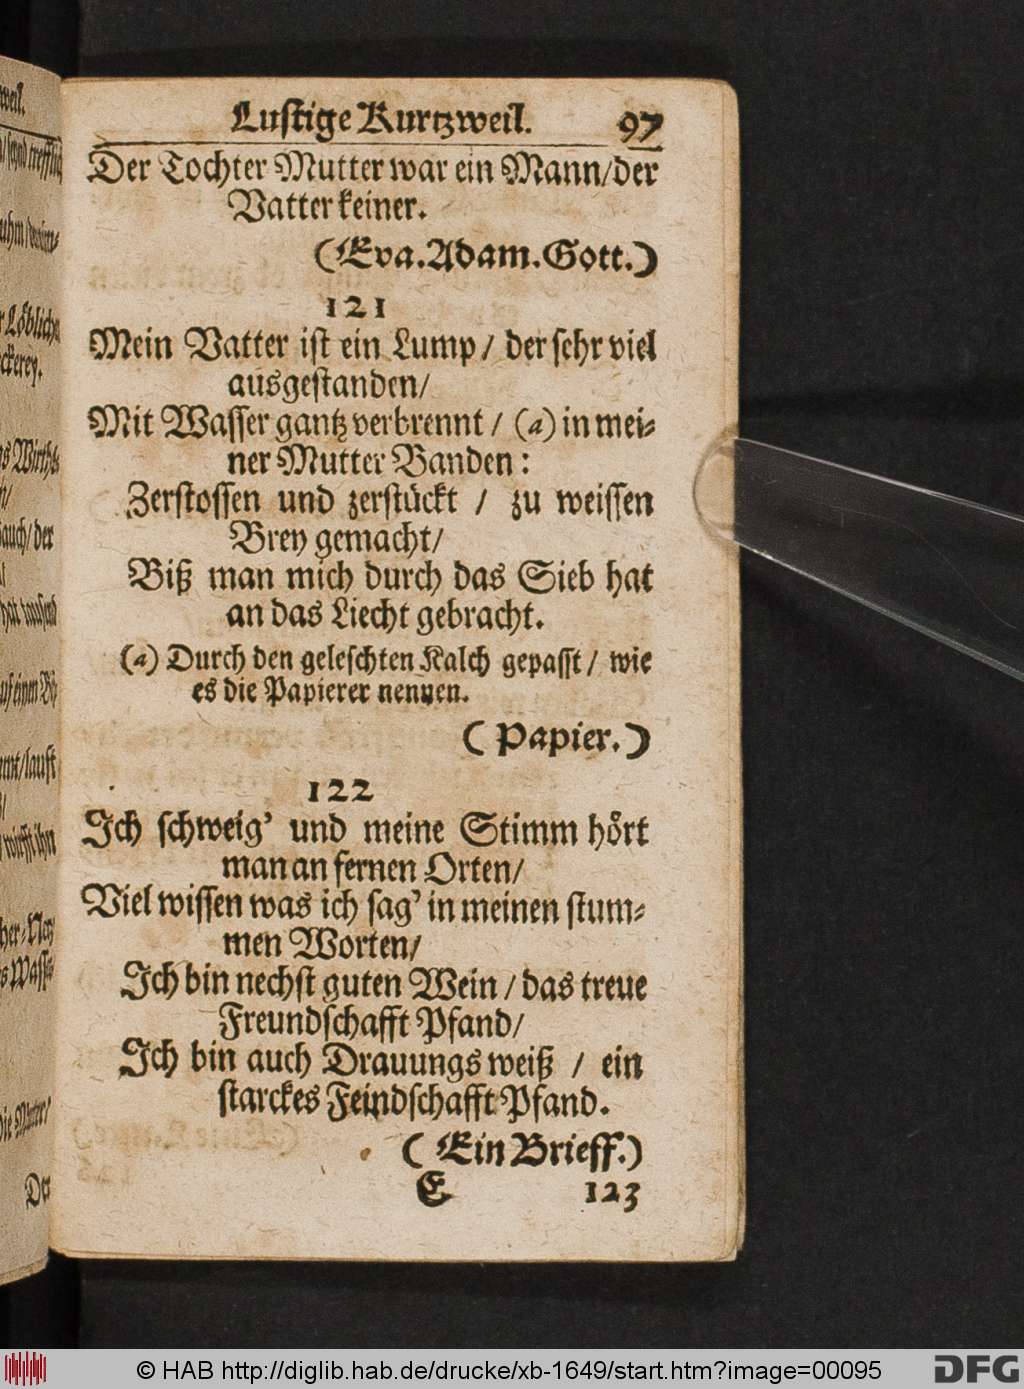 Lustige Kurtzweil. 97
Der Tochter Mutter war ein Mann/der
Vatter keiner.
(Eva. Adam. Gott.)
121
Mein Vatter ist ein Lump/ der sehr viel
ausgestanden/
Mit Wasser gantz verbrennt/ (a) in mei⸗
ner Mutter Banden:
Zerstossen und zerstückt / zu weissen
Brey gemacht/
Biß man mich durch das Sieb hat
an das Liecht gebracht.
(a) Durch den geleschten Kalch gepasst/ wie
es die Papierer nennen.
(Papier.)
122
Ich schweig' und meine Stimm hört
man an fernen Orten/
Viel wissen was ich sag' in meinen stum⸗
men Worten/
Ich bin nechst guten Wein/das treue
Freundschafft Pfand/
Ich bin auch Drauungs weiß / ein
starckes Feindschafft Pfand.
(Ein Brieff.)
E 123
weil.
Löbliche
ckerey.
Der
© HAB http://diglib.hab.de/drucke/xb-1649/start.htm?image=00095
DFG